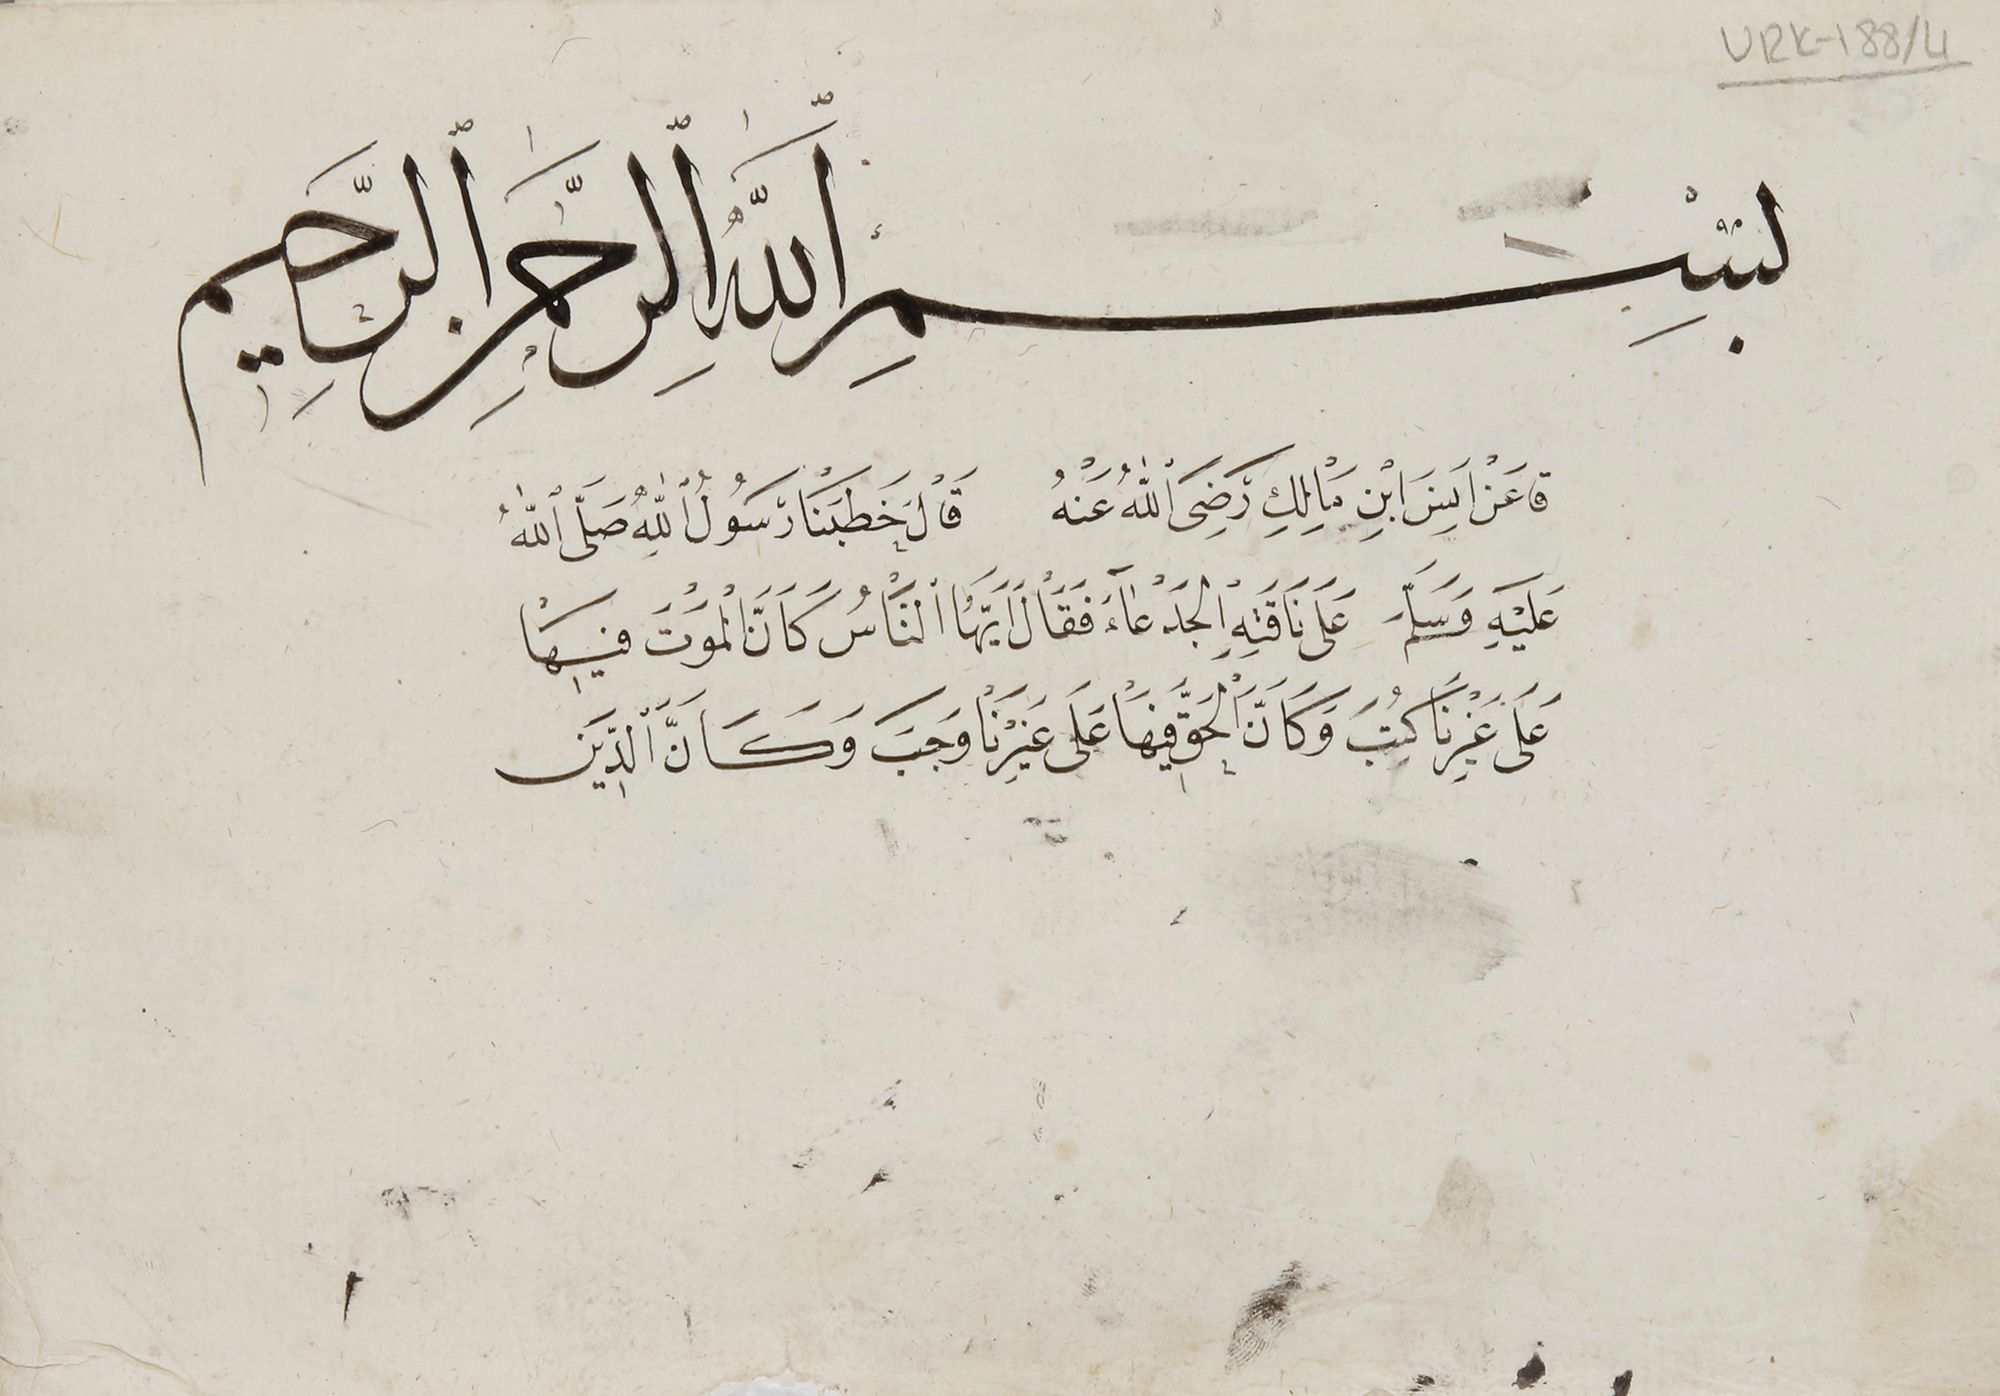 VRK-188/4
بِسْمِ ٱللَّهِ ٱلرَّحْمَنِ ٱلرَّحِيمِ
عَنْ اَنَسَ ابْنِ مَالِكِ رَضِىَ ٱللّٰهُ عَنْهُ قَالَ خَطَبَنَا رَسُولُ ٱللّٰهِ صَلَّى ٱللّٰهُ
عَلَيْهِ وَسَلَّمَ عَلَى نَاقَتِهِ الْجَدْعَآءِ فَقَالَ اَيُّهَا ٱلنَّاسُ كَاَنَّ الْمَوْتَ فِيهَا
عَلَى غَيْرِنَا كُتِبَ وَكَاَنَّ الْحَقَّ فِيهَا عَلَى غَيْرِنَا وَجَبَ وَكَاَنَّ ٱلَّذِينَ